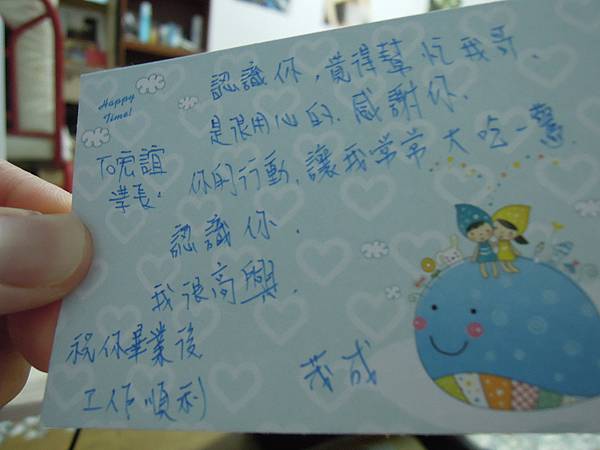 Happy
Time!
To宏誼
學長.
認識你,覺得幫忙我哥.
是很用心的.感謝你.
你的行動,讓我常常大吃一驚
認識你.
我很高興.
祝你畢業後
工作順利
茂成